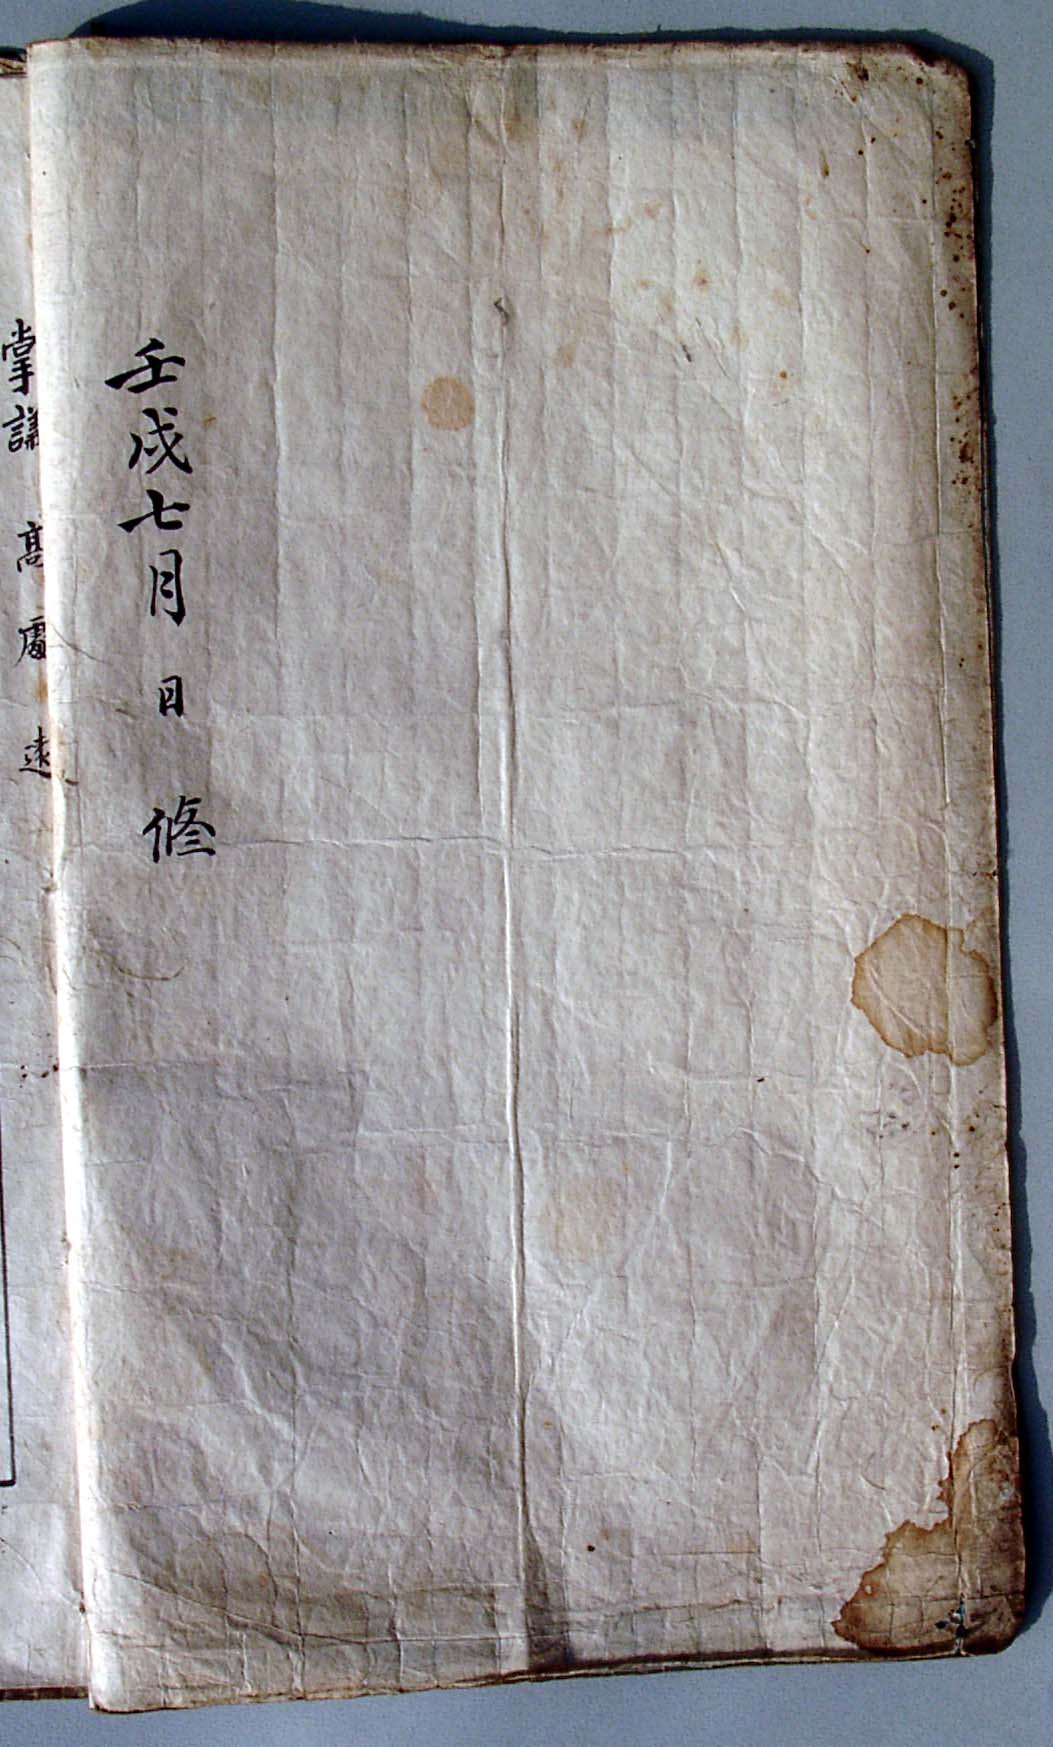 壬戌七月 日 修
掌議 高 處 遠